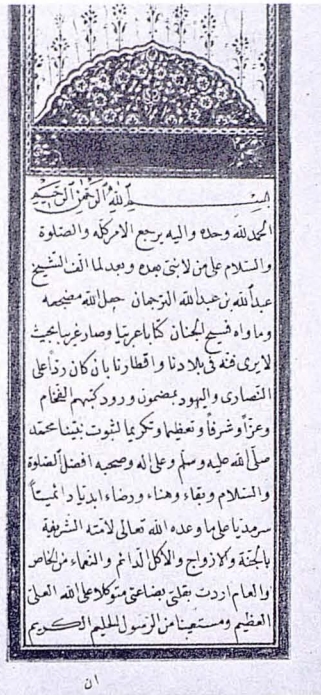 بسم الله الرحمن الرحيم
الحمد لله وحده واليه يرجع الامر كله والصلوة
والسلام على من لا نبى بعده وبعد لما الف الشيخ
عبدالله بن عبدالله الترجمان جعل الله مضجعه
وماواه فسيح الجنان كتابا عربيا وصار غريبا بحيث
لا يرى فنه فى بلادنا واقطارنا بان كان ردا على
النصارى واليهود بمضمون ورود كتبهم الفخام
وعزاً وشرفاً وتعظيما وتكريما لثبوت نبينا محمد
صلى الله عليه وسلم وعلى اله وصحبه افضل الصلوة
والسلام وبقاء وهناء ورضاء ابديا دائميتاً
سرمديا على ما وعده الله تعالى لامته الشريفة
بالجنة والازواج والاكل الدائم والنعماء من الخاص
والعام اردت بقلتى بضاعتى متوكلا على الله العلى
العظيم ومستعينا من الرسول الحليم الكريم
ان